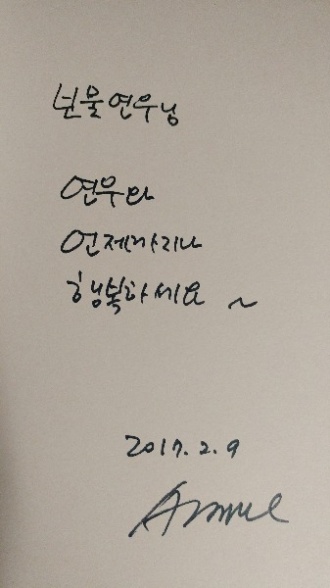 보물연우님
연우와
언제까지나
행복하세요 ~
2017. 2. 9